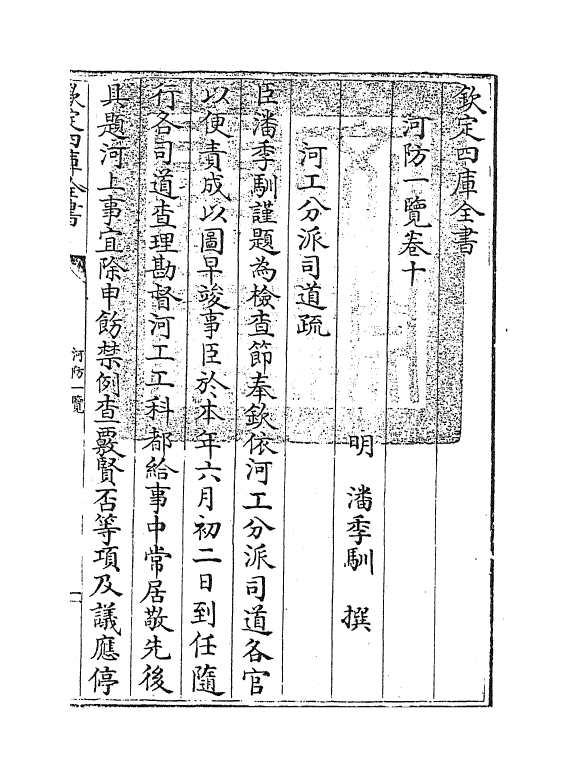 欽定四庫全書
河防一覽卷十
明 潘季馴 撰
河工分派司道疏
臣潘季馴謹題為檢查節奉欽依河工分派司道各官
以便責成以圖早竣事臣於本年六月初二日到任隨
行各司道查理勘督河工工科都給事中常居敬先後
具題河上事宜除申飭禁例查覈賢否等項及議應停
欽定四庫全書
河防一覽